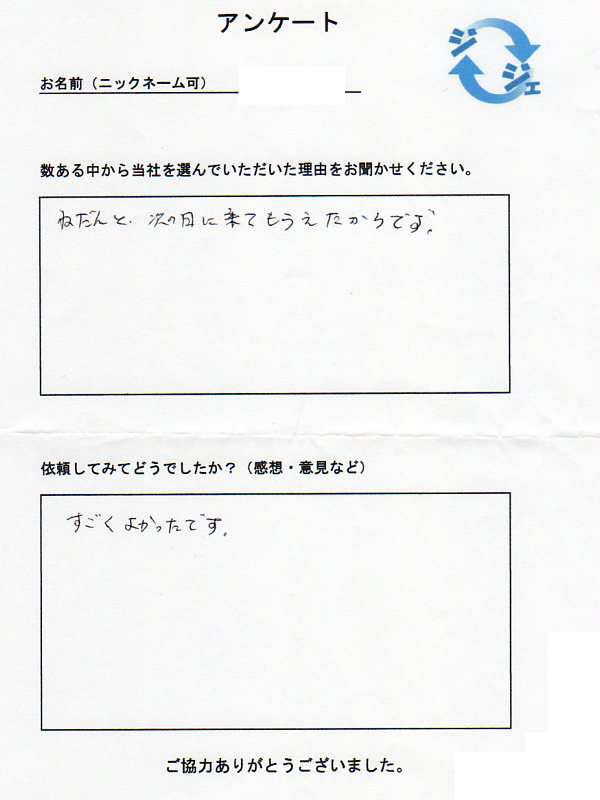 アンケート
ジジェ
お名前（ニックネーム可）
数ある中から当社を選んでいただいた理由をお聞かせください。
ねだんと、次の日に来てもらえたからです。
依頼してみてどうでしたか？（感想・意見など）
すごくよかったです。
ご協力ありがとうございました。